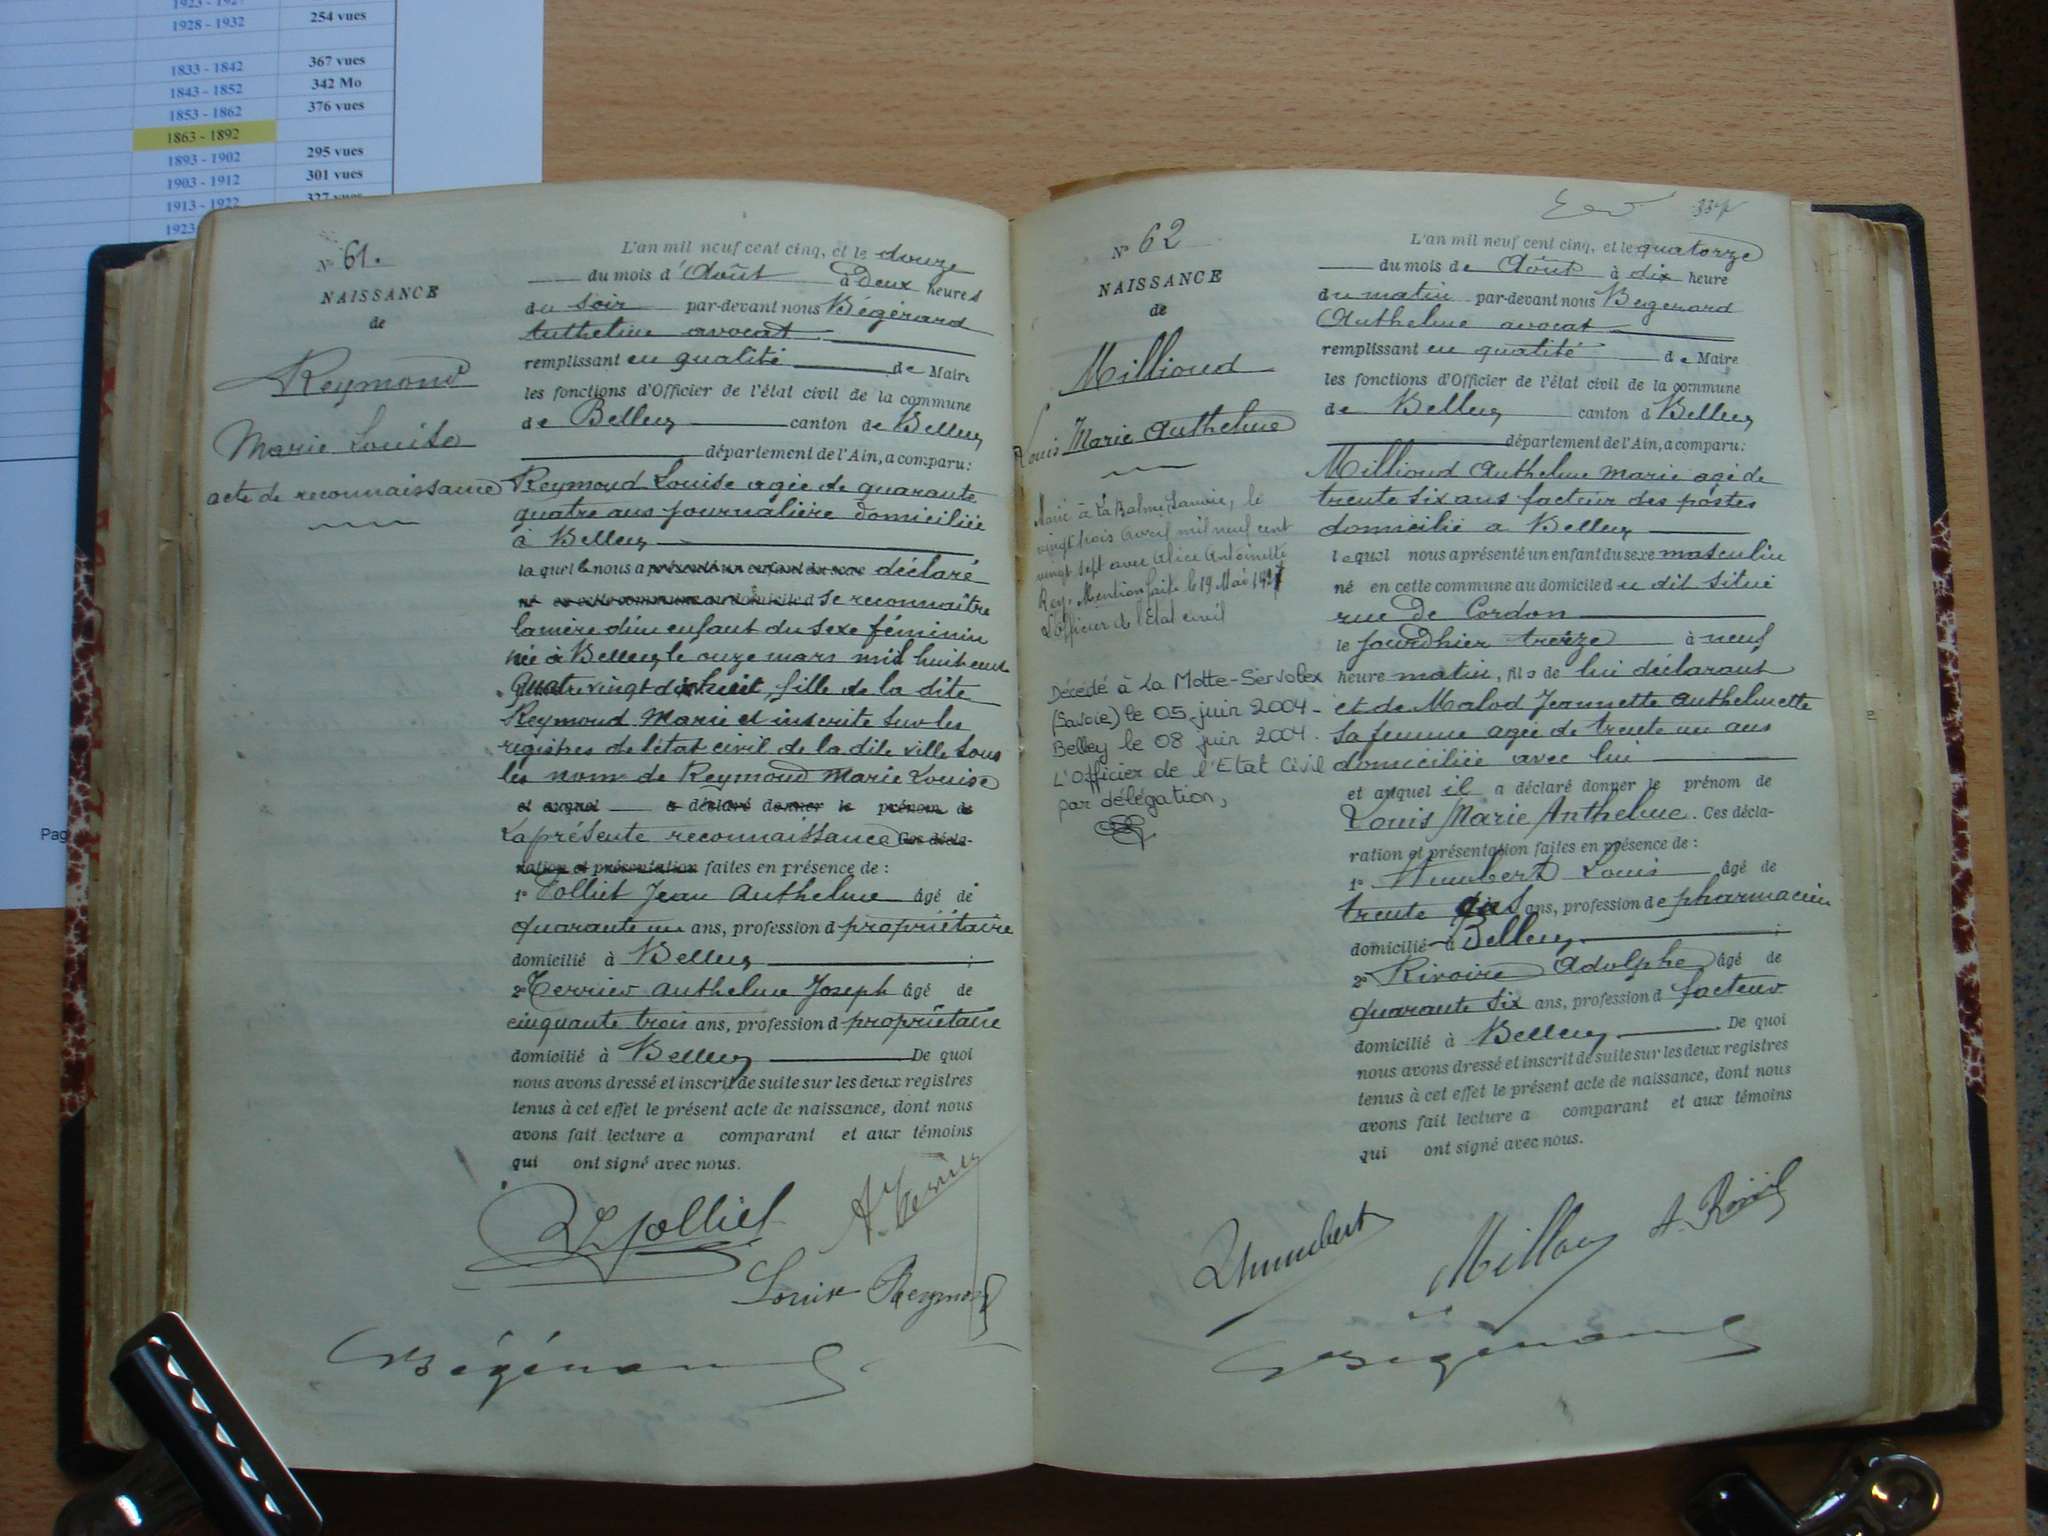 1923 - 1927
1928 - 1932 254 vues
1833 - 1842 367 vues
1843 - 1852 342 Mo
1853 - 1862 376 vues
1863 - 1892
1893 - 1902 295 vues
1903 - 1912 301 vues
1913 - 1922 327 vues
1923
Pag
N° 61.
NAISSANCE
de
Reymond
Marie Louise
acte de reconnaissance
L'an mil neuf cent cinq, et le douze
du mois d'Août à deux heures
du soir par-devant nous Bégérard
Anthelme avocat
remplissant en qualité de Maire
les fonctions d'Officier de l'état civil de la commune
de Belley canton de Belley
département de l'Ain, a comparu:
Reymond Louise agée de quarante
quatre ans journalière domiciliée
à Belley
laquelle nous a présenté un enfant du sexe déclaré
né en cette commune au domicile d se reconnaître
la mère d'un enfant du sexe féminin
née à Belley le onze mars mil huit cent
quatre vingt dix huit, fille de la dite
Reymond Marie et inscrite sur les
registres de l'état civil de la dite ville sous
les nom de Reymond Marie Louise
et auquel a déclaré donner le prénom de
La présente reconnaissance Ces décla-
ration et présentation faites en présence de :
1° Jolliet Jean Anthelme âgé de
quarante un ans, profession d propriétaire
domicilié à Belley ;
2° Terrier Anthelme Joseph âgé de
cinquante trois ans, profession d propriétaire
domicilié à Belley De quoi
nous avons dressé et inscrit de suite sur les deux registres
tenus à cet effet le présent acte de naissance, dont nous
avons fait lecture a comparant et aux témoins
qui ont signé avec nous.
Jolliet
A. Terrier
Louise Reymond
Bégérard
337
N° 62
NAISSANCE
de
Millioud
Louis Marie Anthelme
Marié à La Balme Savoie, le
vingt trois Avril mil neuf cent
vingt sept avec Alice Antoinette
Rey. Mention faite le 19 Mai 1927
L'Officier de l'Etat civil
Décédé à La Motte-Servolex
(Savoie) le 05 juin 2004 -
Belley le 08 juin 2004.
L'Officier de l'Etat Civil
par délégation,
L'an mil neuf cent cinq, et le quatorze
du mois de Août à dix heure
du matin par-devant nous Bégérard
Anthelme avocat
remplissant en qualité de Maire
les fonctions d'Officier de l'état civil de la commune
de Belley canton d Belley
département de l'Ain, a comparu:
Millioud Anthelme Marie agé de
trente six ans facteur des postes
domicilié a Belley
lequel nous a présenté un enfant du sexe masculin
né en cette commune au domicile du dit situé
rue de Cordon
le jourdhier treize à neuf
heure matin, fils de lui déclarant
et de Malod Jeannette Anthelmette
sa femme agée de trente un ans
domiciliée avec lui
et auquel il a déclaré donner le prénom de
Louis Marie Anthelme. Ces décla-
ration et présentation faites en présence de :
1° Humbert Louis âgé de
trente ans, profession de pharmacien
domicilié à Belley ;
2° Rivoire Adolphe âgé de
quarante six ans, profession d facteur
domicilié à Belley. De quoi
nous avons dressé et inscrit de suite sur les deux registres
tenus à cet effet le présent acte de naissance, dont nous
avons fait lecture a comparant et aux témoins
qui ont signé avec nous.
LHumbert
Milliou
A. Rivoire
Bégérard